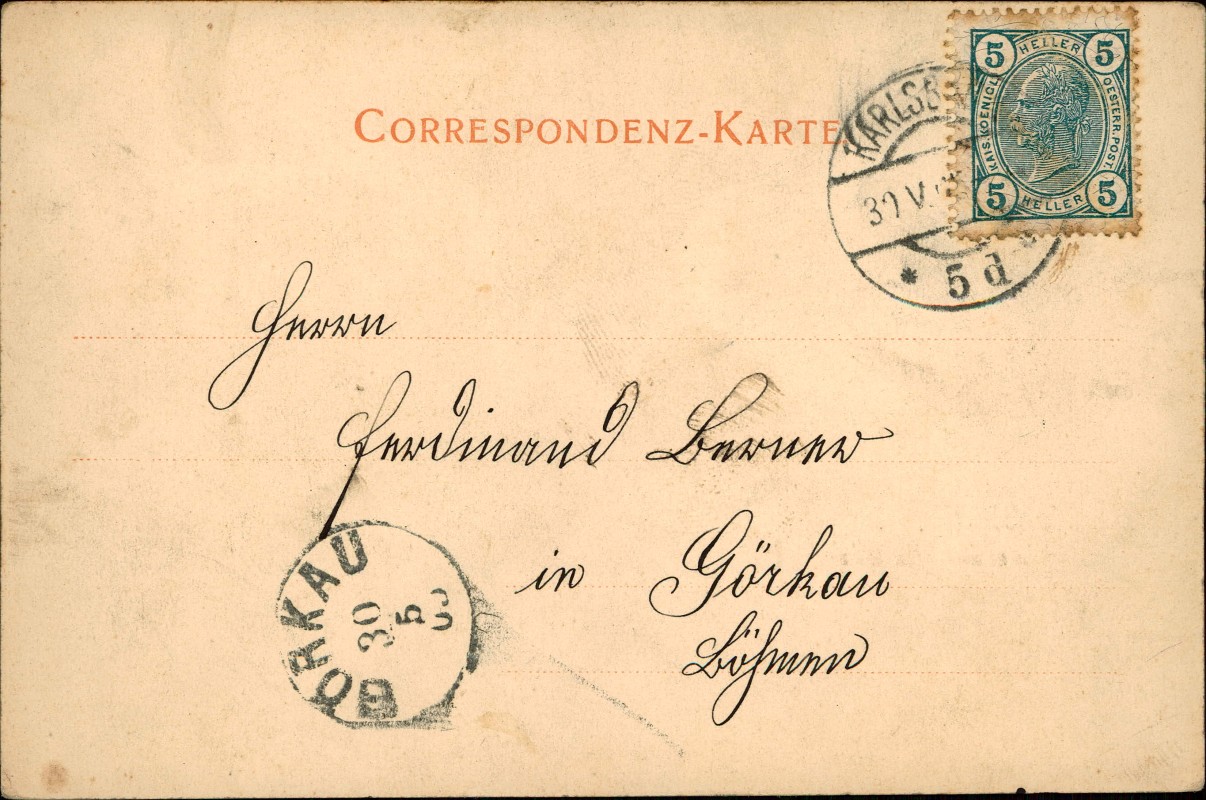 CORRESPONDENZ-KARTE
5 HELLER 5
KAIS. KOENIGL. OESTERR. POST.
5 HELLER 5
KARLSB
30 V
* 5 d
Herrn
Ferdinand Berner
in Görkau
Böhmen
GÖRKAU
30
5